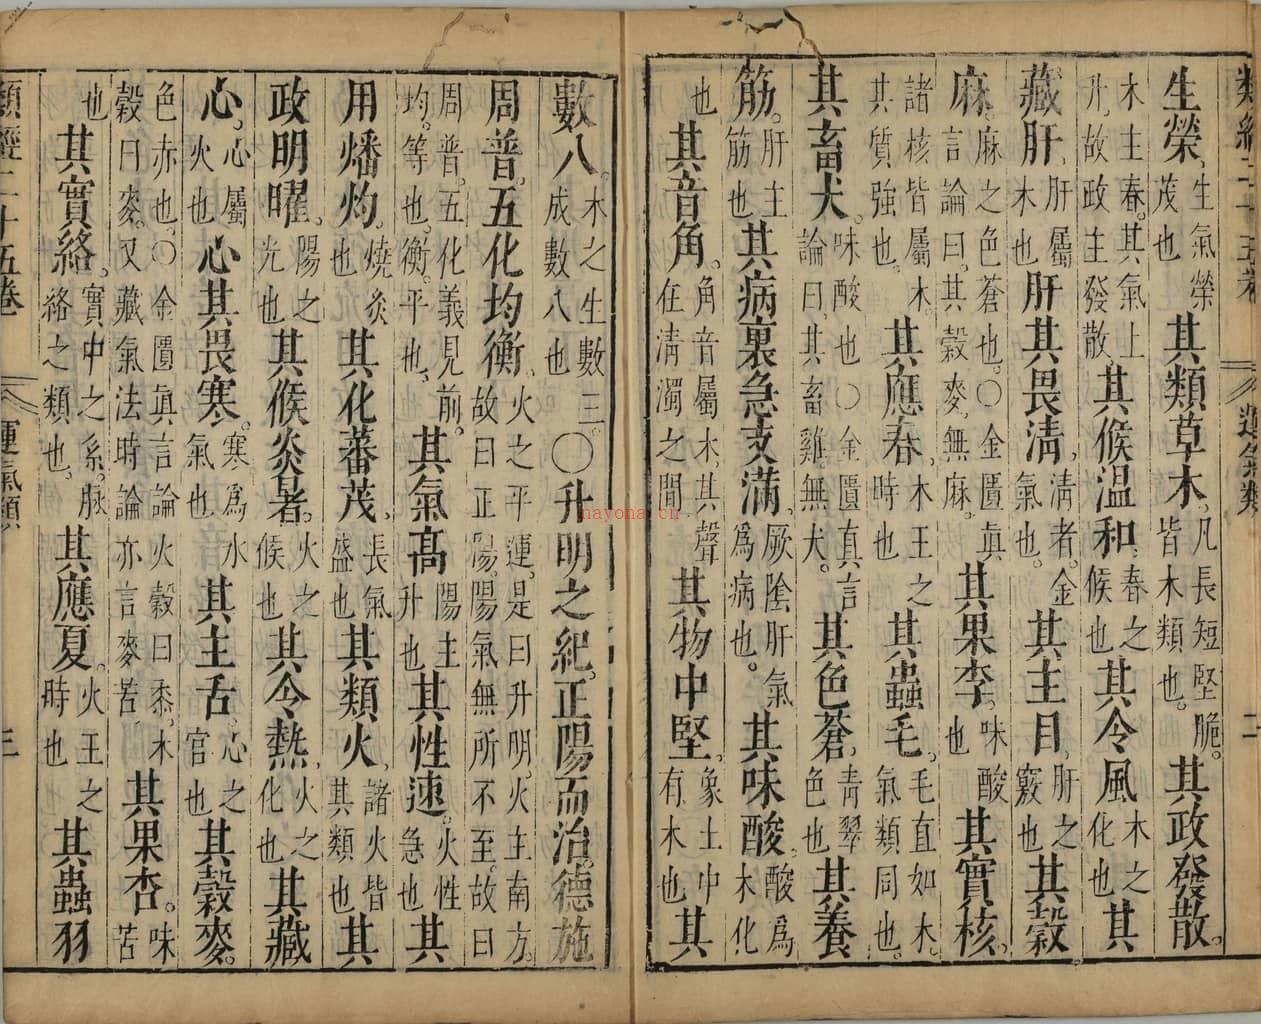 類經二十五卷 運氣類 二
生榮。生氣榮茂也其類草木。凡長短堅脆。皆木類也。其政發散。
木主春。其氣上升。故政主發散。其候温和。春之候也其令風。木之化也其
藏肝。肝屬木也肝其畏清。清者。金氣也。其主目。肝之竅也其穀
麻。麻之色蒼也。〇金匱真言論曰。其穀麥。無麻。其果李。味酸也其實核。
諸核皆屬木。其質強也。其應春。木王之時也其蟲毛。毛直如木。氣類同也。
其畜犬。味酸也〇金匱真言論曰。其畜雞無犬。其色蒼。青翠色也其養
筋。肝主筋也其病裏急支滿。厥陰肝氣爲病也。其味酸。酸爲木化
也其音角。角音屬木。其聲在清濁之間其物中堅。象土中有木也其
數八。木之生數三。成數八也〇升明之紀。正陽而治。德施
周普。五化均衡。火之平運。是曰升明。火主南方。故曰正陽。陽氣無所不至。故曰
周普。五化義見前。均。等也。衡。平也。其氣高陽主升也其性速。火性急也其
用燔灼。燒炙也其化蕃茂。長氣盛也其類火。諸火皆其類也其
政明曜。陽之光也其候炎暑。火之候也其令熱。火之化也其藏
心。心屬火也心其畏寒。寒爲水氣也其主舌。心之官也其穀麥。
色赤也。〇金匱眞言論火穀曰黍。木穀曰麥。又藏氣法時論亦言麥苦其果杏。味苦
也其實絡。實中之系。脉絡之類也。其應夏。火王之時也其蟲羽
類經二十五卷 運氣類 三
nayona.cn